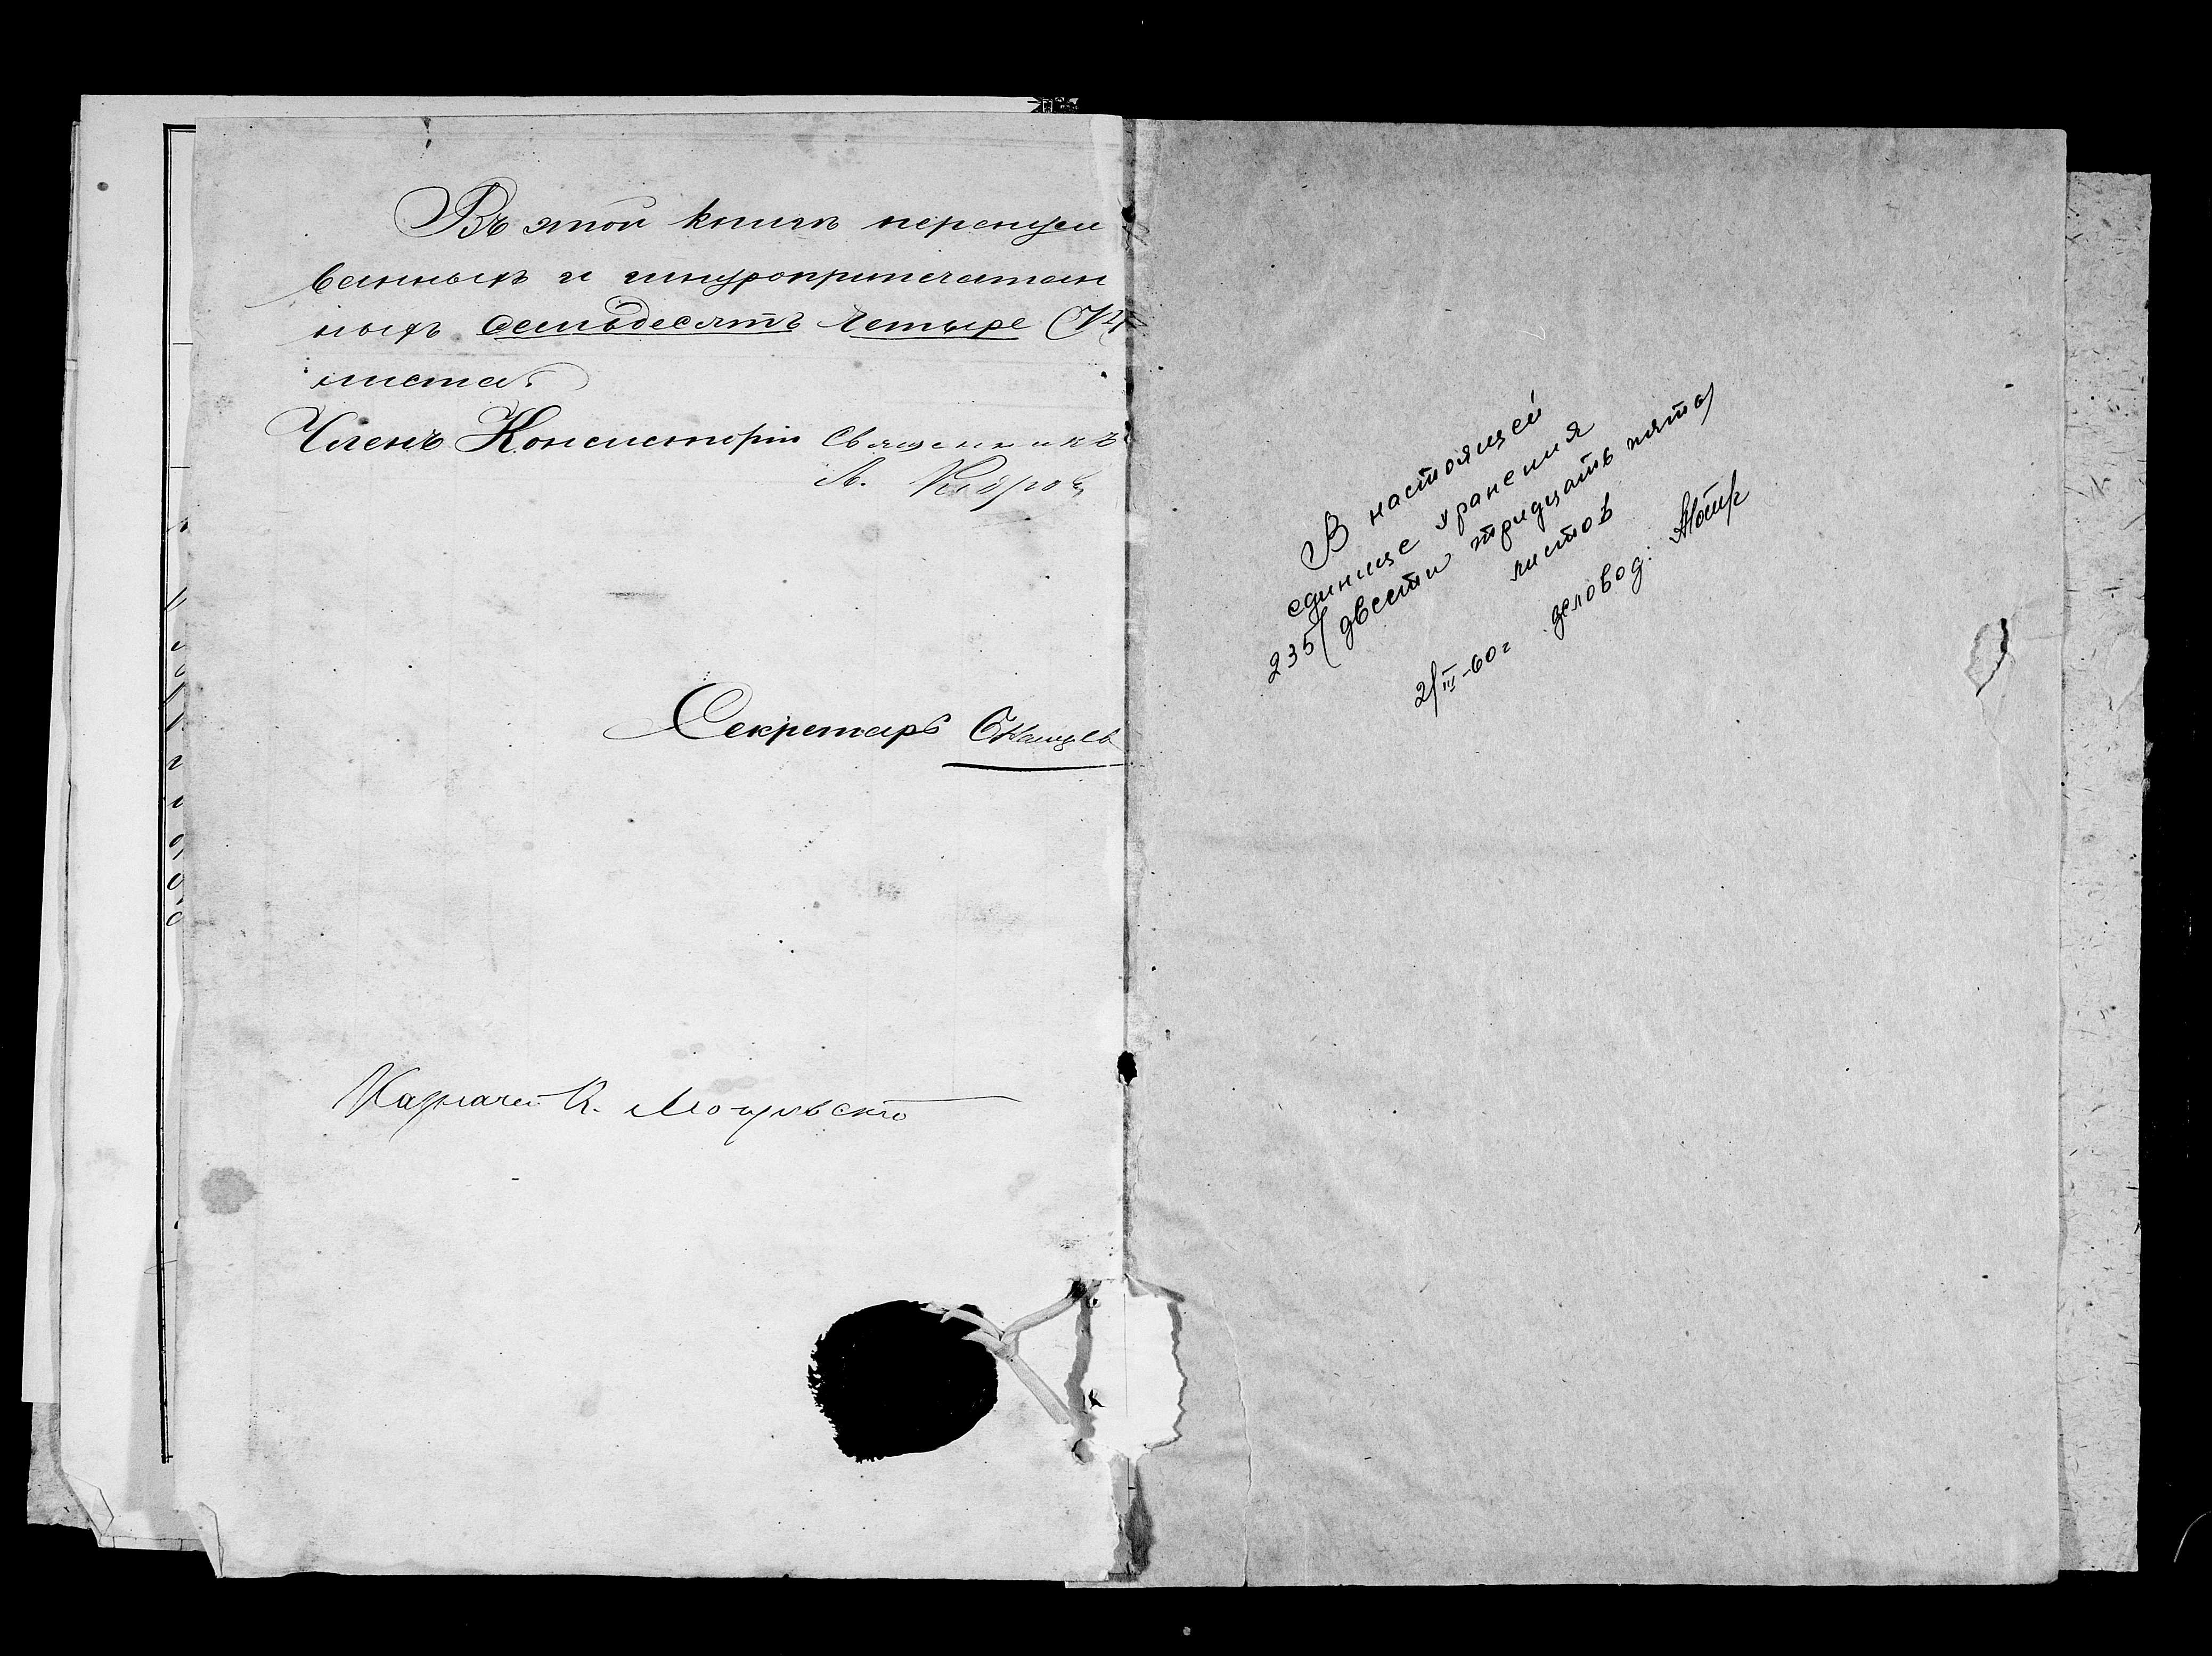 Въ этой книгѣ перенуме
ванныхъ и шнуроприпечатан
ныхъ семьдесятъ четыре (74
листа.
Членъ Консисторіи Священникъ
А.
Секретарь
Казначей К.
В настоящей
единице хранения
235 (двести тридцать пять)
листов
2/III-60г деловод: